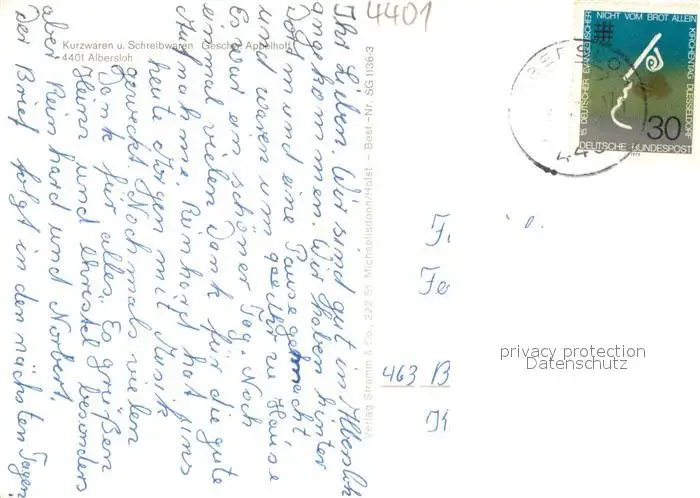 4401
Kurzwaren u. Schreibwaren Geschw. Appelhoff
4401 Albersloh
Ihr Lieben. Wir sind gut in Albersloh
angekommen. Wir haben hinter
Dortmund eine Pause gemacht
und waren um Uhr zu Hause
Es war ein schöner Tag. Noch
einmal vielen Dank für die gute
Aufnahme. Reinhard hat uns
heute Morgen mit Musik
geweckt. Nochmals vielen
Dank für alles. Es grüßen
Heinz und Christel besonders
aber Reinhard und Norbert.
Der Brief folgt in den nächsten Tagen.
Verlag Stramm & Co., 222 St. Michaelisdonn/Holst. – Best.-Nr. SG 1136-3
15. DEUTSCHER EVANGELISCHER
NICHT VOM BROT ALLEIN
KIRCHENTAG DUESSELDORF
30
DEUTSCHE BUNDESPOST
463 B
privacy protection
Datenschutz